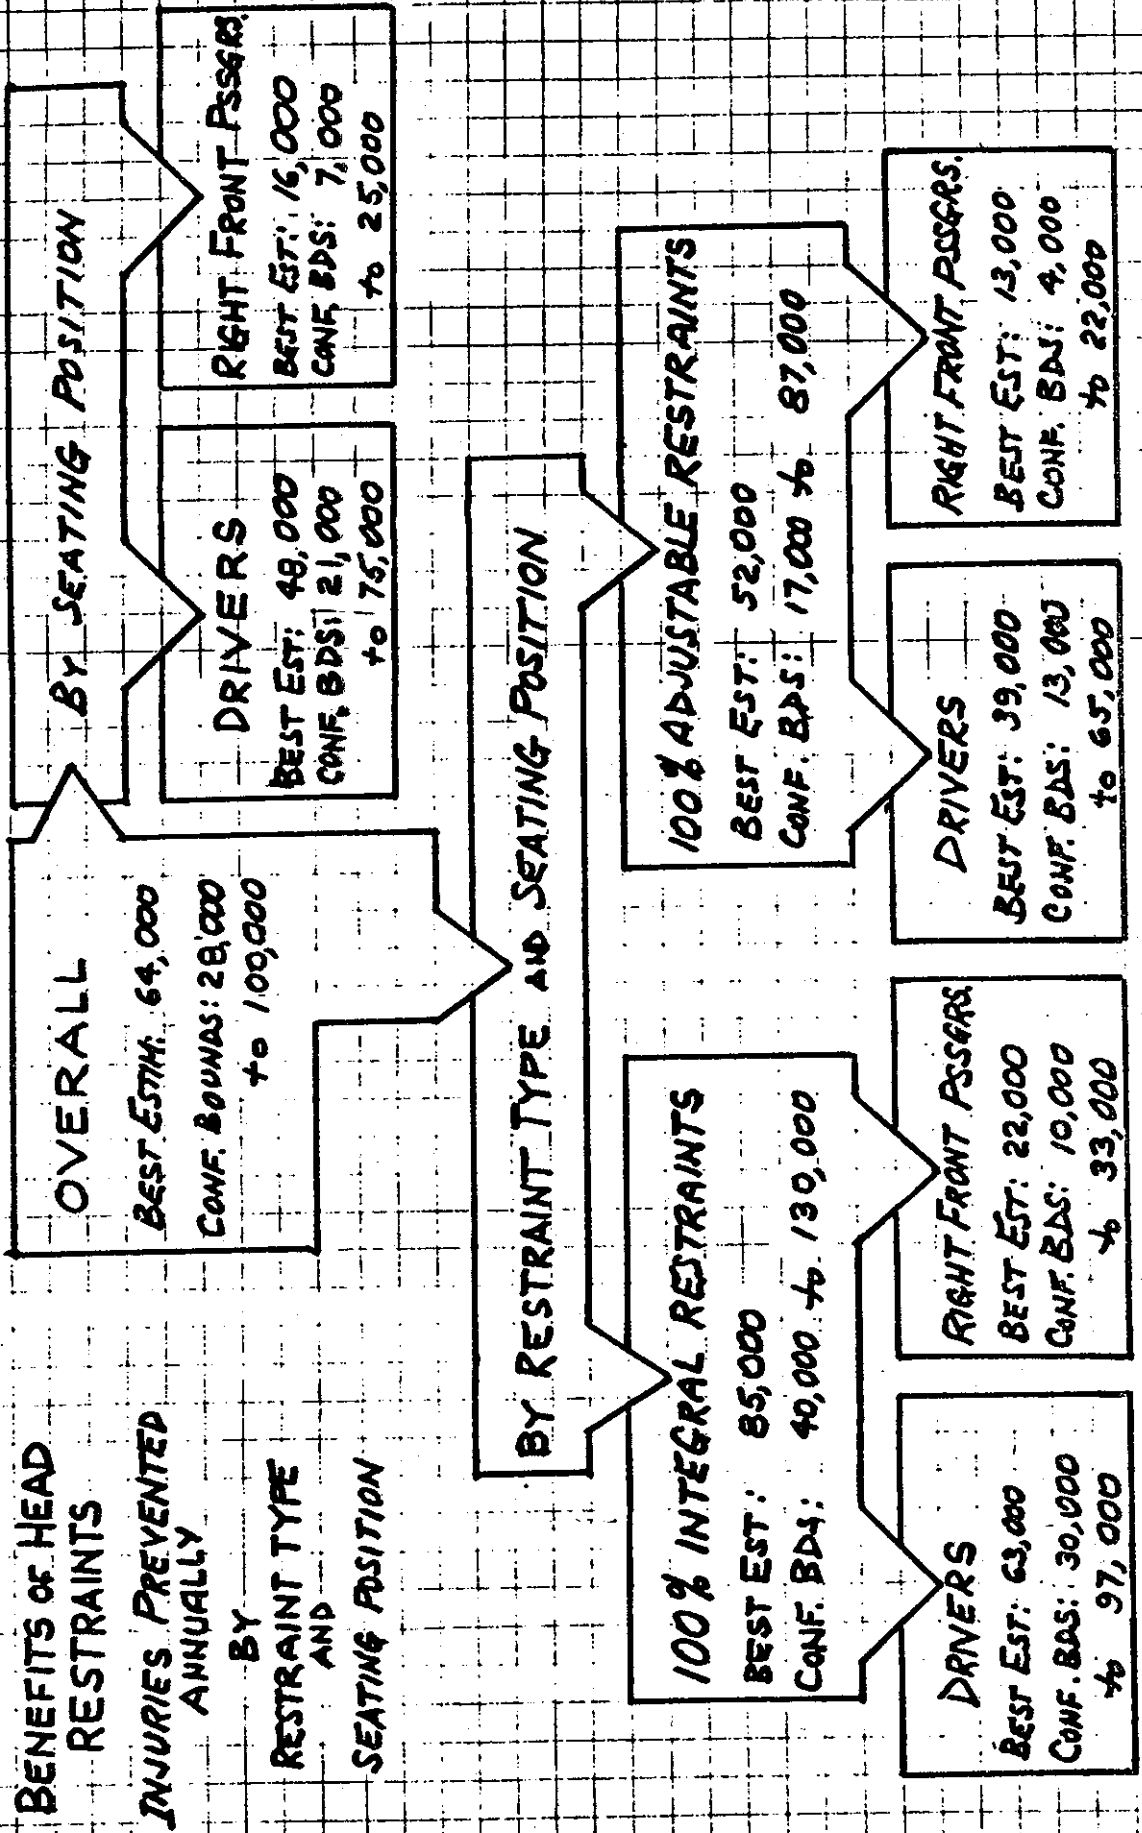 BENEFITS OF HEAD
RESTRAINTS
INJURIES PREVENTED
ANNUALLY
BY
RESTRAINT TYPE
AND
SEATING POSITION
OVERALL
BEST ESTIM: 64,000
CONF. BOUNDS: 28,000
to 100,000
BY SEATING POSITION
DRIVERS
BEST EST: 48,000
CONF. BDS: 21,000
to 75,000
RIGHT FRONT PSSGRS.
BEST EST: 16,000
CONF. BDS: 7,000
to 25,000
BY RESTRAINT TYPE AND SEATING POSITION
100% INTEGRAL RESTRAINTS
BEST EST: 85,000
CONF. BDS: 40,000 to 130,000
DRIVERS
BEST EST: 63,000
CONF. BDS: 30,000
to 97,000
RIGHT FRONT PSSGRS.
BEST EST: 22,000
CONF. BDS: 10,000
to 33,000
100% ADJUSTABLE RESTRAINTS
BEST EST: 52,000
CONF. BDS: 17,000 to 87,000
DRIVERS
BEST EST: 39,000
CONF. BDS: 13,000
to 65,000
RIGHT FRONT PSSGRS.
BEST EST: 13,000
CONF. BDS: 4,000
to 22,000